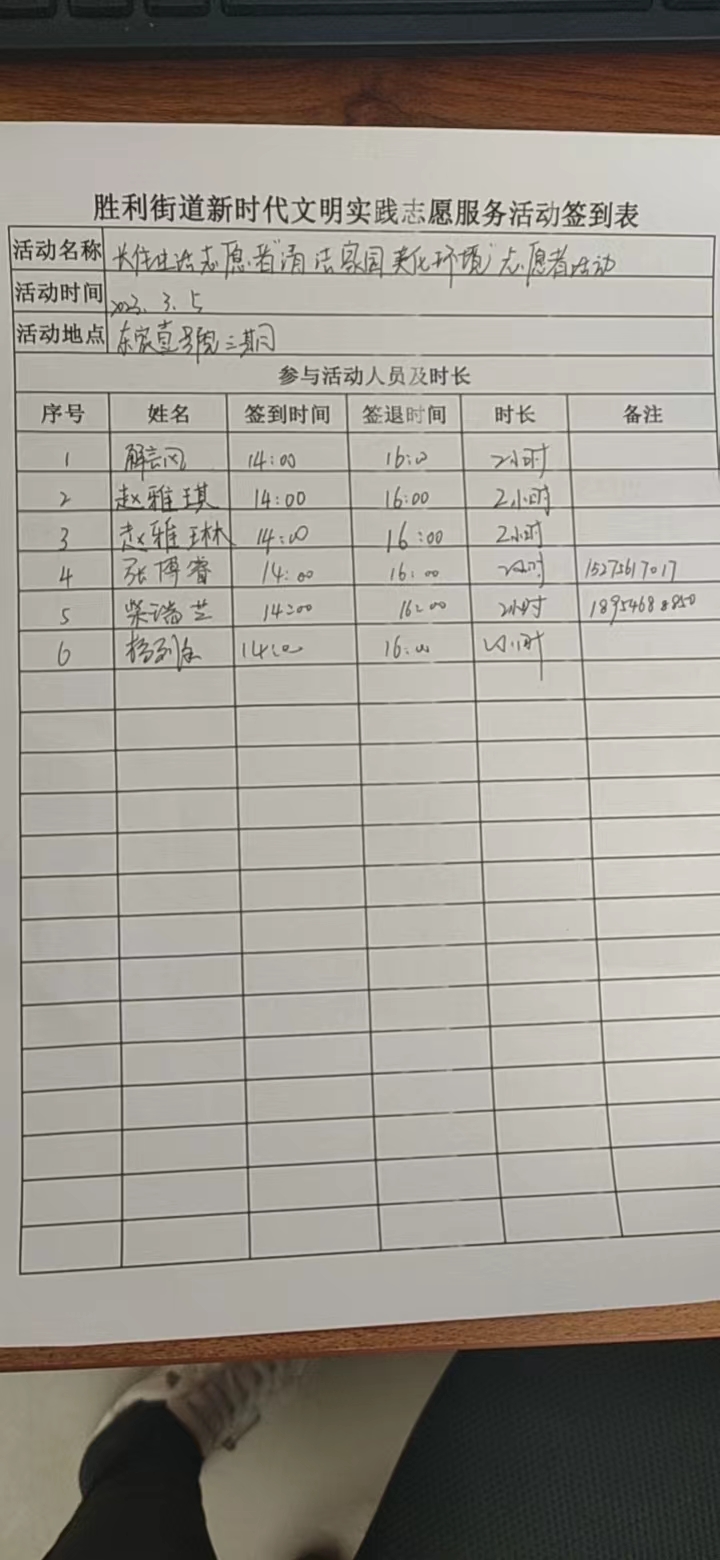 胜利街道新时代文明实践志愿服务活动签到表
活动名称 志愿者"清洁家园美化环境"志愿者活动
活动时间 2023.3.5
活动地点 三期
参与活动人员及时长
序号 姓名 签到时间 签退时间 时长 备注
1 14:00 16:00 2小时
2 赵雅琪 14:00 16:00 2小时
3 赵雅琳 14:00 16:00 2小时
4 张博睿 14:00 16:00 2小时 15273617017
5 柴瑞芝 14:00 16:00 2小时 18954688850
6 14:00 16:00 2小时